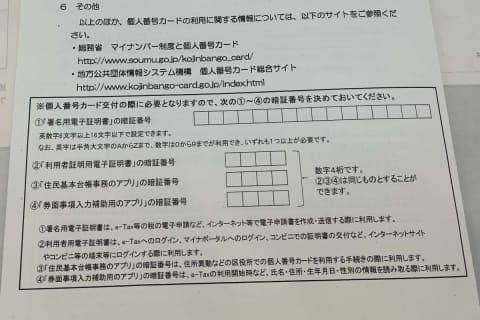 6 その他
以上のほか、個人番号カードの利用に関する情報については、以下のサイトをご参照くだ
さい。
・総務省 マイナンバー制度と個人番号カード
http://www.soumu.go.jp/kojinbango_card/
・地方公共団体情報システム機構 個人番号カード総合サイト
http://www.kojinbango-card.go.jp/index.html
※個人番号カード交付の際に必要となりますので、次の①~④の暗証番号を決めておいてください。
①「署名用電子証明書」の暗証番号
英数字6文字以上16文字以下で設定できます。
なお、英字は半角大文字のAからZまで、数字は0から9までが利用でき、いずれも1つ以上が必要です。
②「利用者証明用電子証明書」の暗証番号
③「住民基本台帳事務のアプリ」の暗証番号
④「券面事項入力補助用のアプリ」の暗証番号
数字4桁です。
②③④は同じものとすること
ができます。
①署名用電子証明書は、e-Tax等の税の電子申請など、インターネット等で電子申請書を作成・送信する際に利用します。
②利用者用電子証明書は、e-Taxへのログイン、マイナポータルへのログイン、コンビニでの証明書の交付など、インターネットサイト
やコンビニ等の端末等にログインする際に利用します。
③「住民基本台帳事務のアプリ」の暗証番号は、住所異動などの区役所での個人番号カードを利用する手続きの際に利用します。
④「券面事項入力補助用のアプリ」の暗証番号は、e-Taxの利用開始時など、氏名・住所・生年月日・性別の情報を読み取る際に利用します。